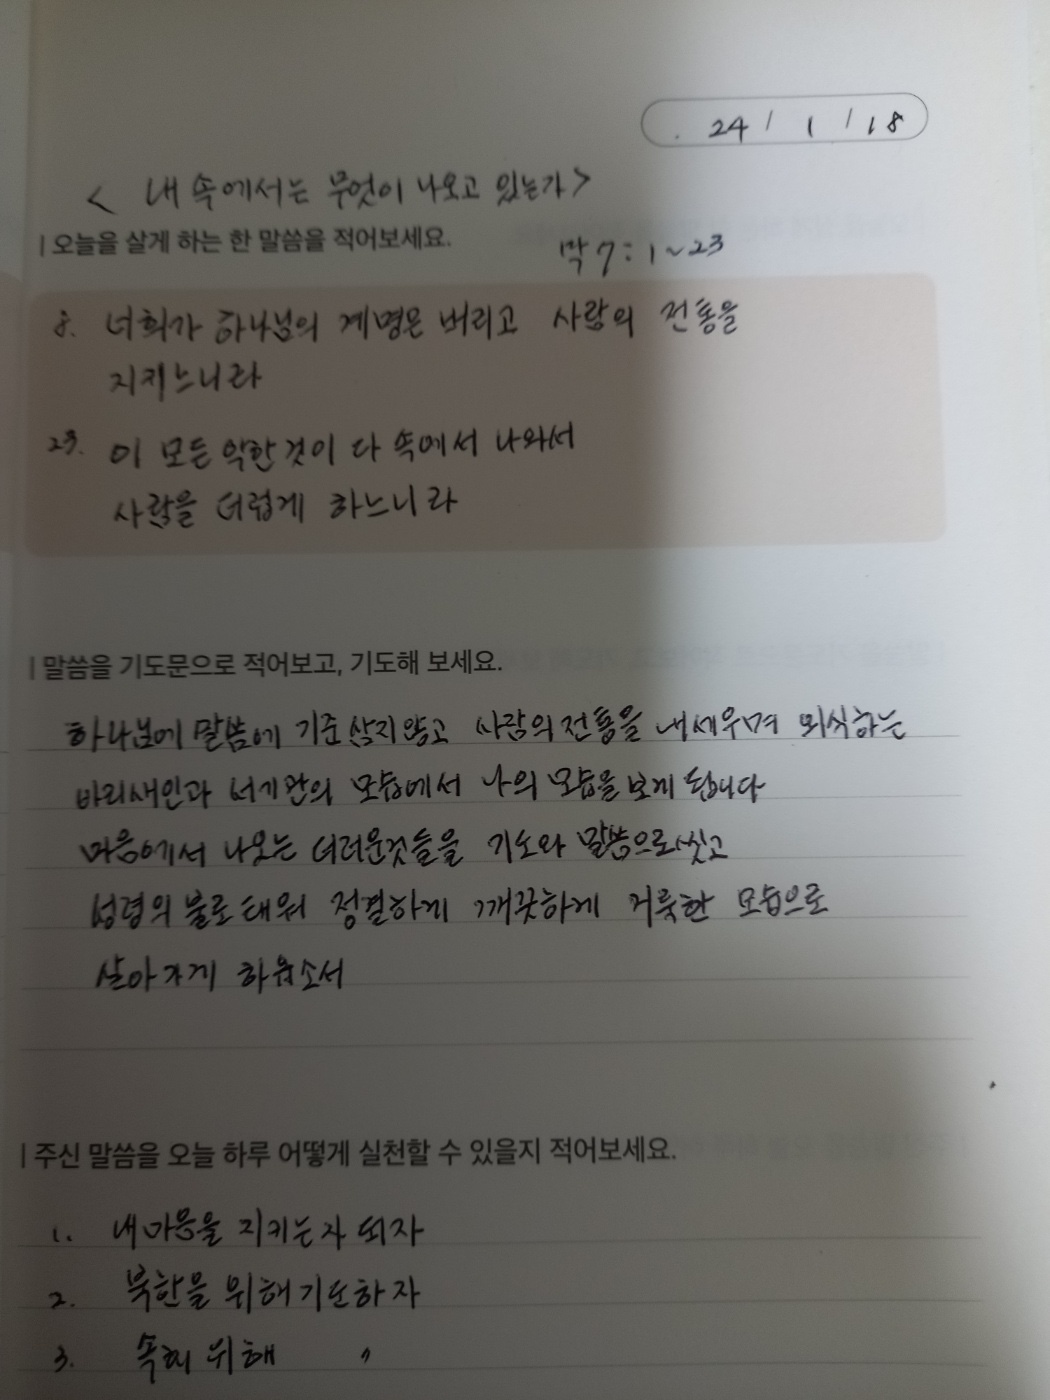 24 / 1 / 18
< 내 속에서는 무엇이 나오고 있는가 >
| 오늘을 살게 하는 한 말씀을 적어보세요.
막 7 : 1 ~ 23
8. 너희가 하나님의 계명은 버리고 사람의 전통을
지키느니라
23. 이 모든 악한 것이 다 속에서 나와서
사람을 더럽게 하느니라
| 말씀을 기도문으로 적어보고, 기도해 보세요.
하나님에 말씀에 기준 삼지 않고 사람의 전통을 내세우며 외식하는
바리새인과 서기관의 모습에서 나의 모습을 보게 됩니다
마음에서 나오는 더러운것들을 기도와 말씀으로 씻고
성령의 불로 태워 정결하게 깨끗하게 거룩한 모습으로
살아가게 하옵소서
| 주신 말씀을 오늘 하루 어떻게 실천할 수 있을지 적어보세요.
1. 내 마음을 지키는 자 되자
2. 북한을 위해 기도하자
3. 속회 위해 〃